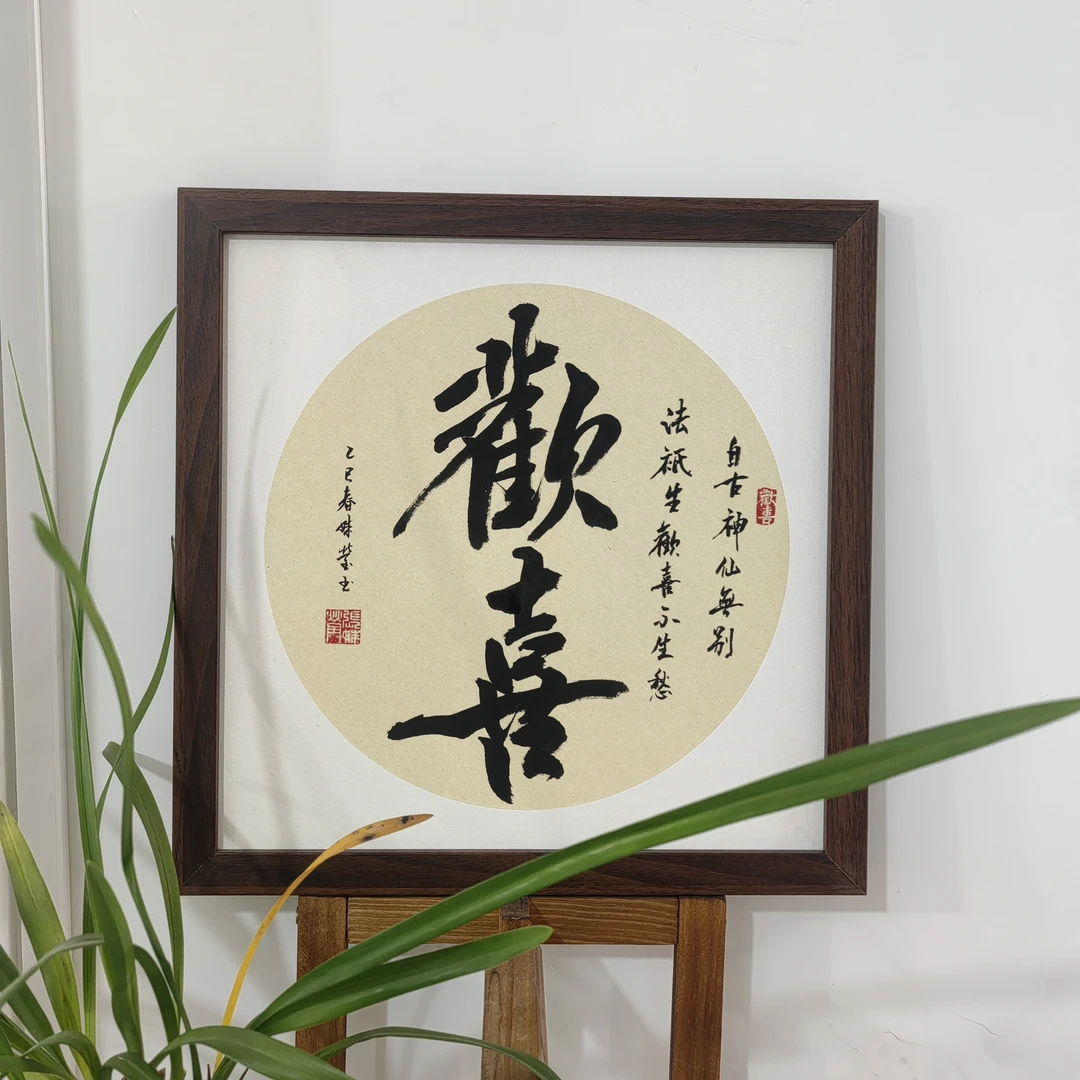 歡喜
自古神仙無別
法祇生歡喜不生愁
歡喜
乙巳春姝瑩书